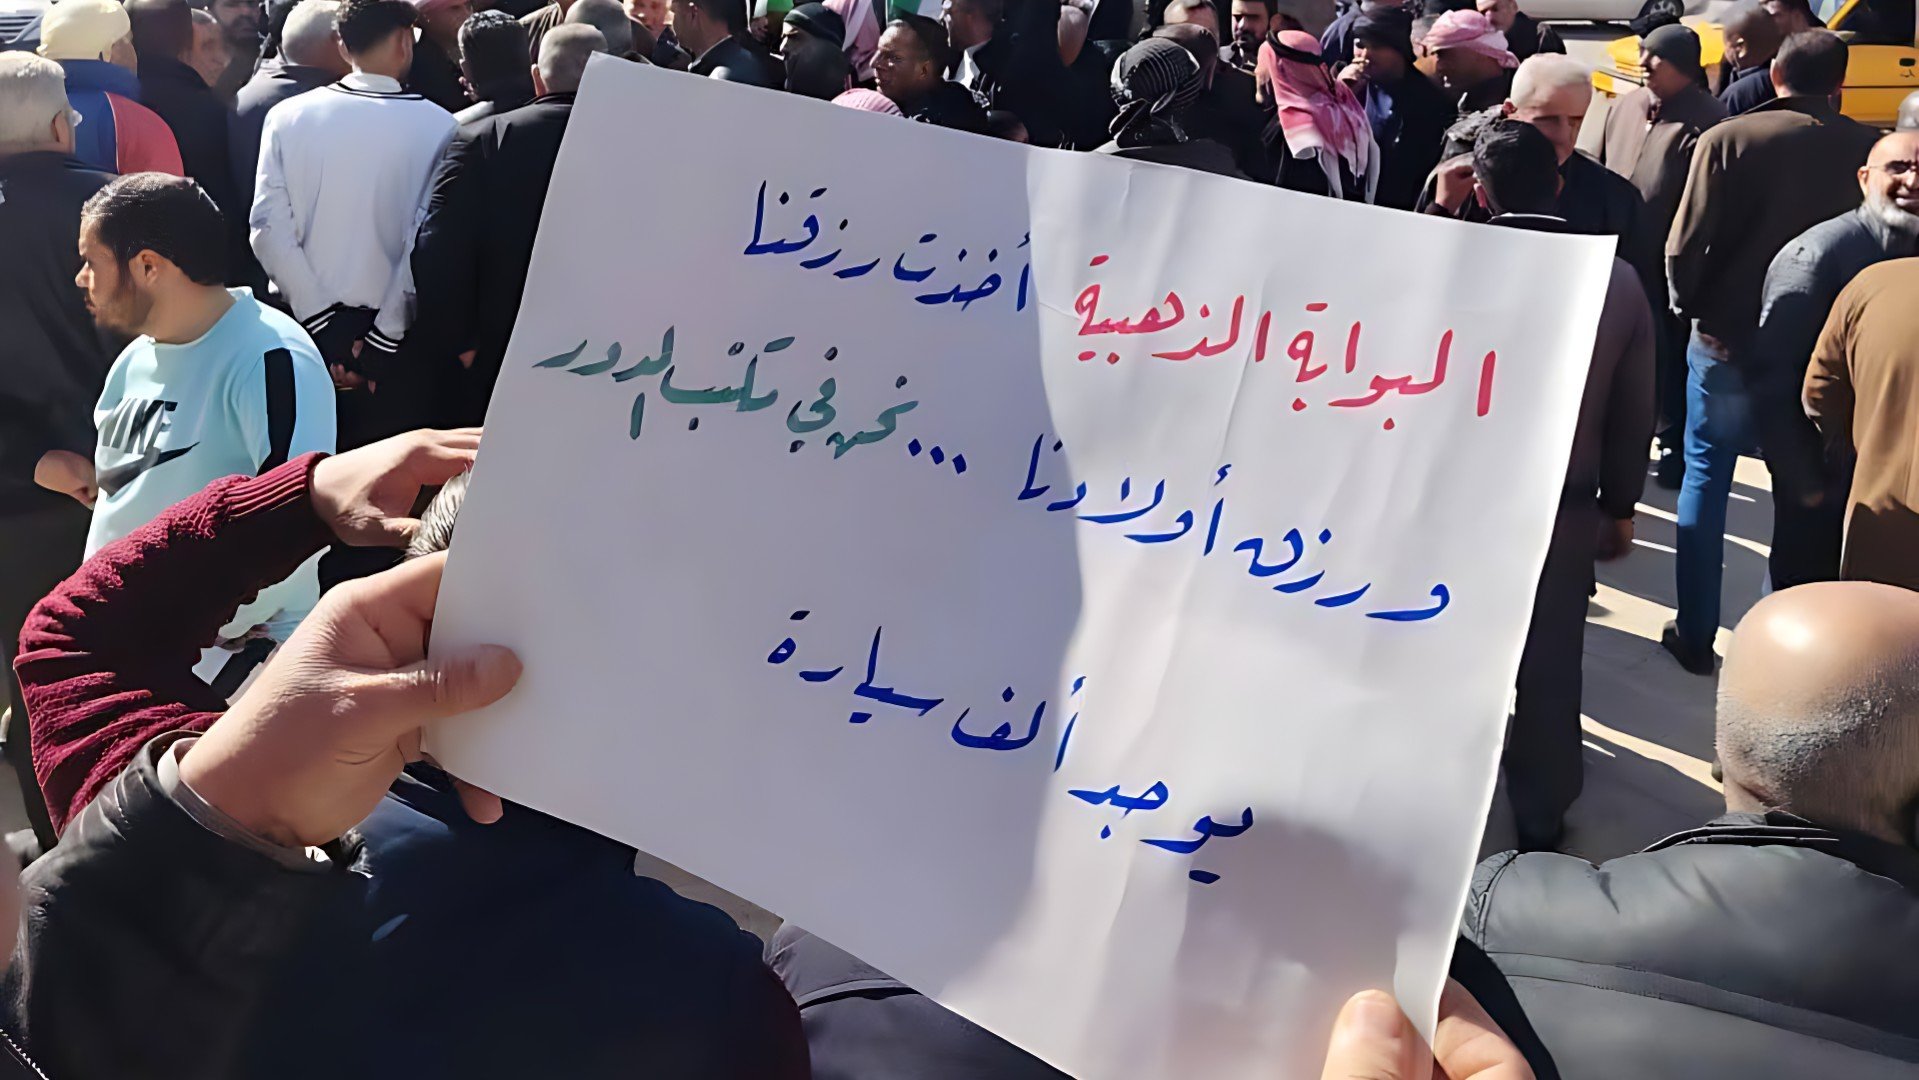 البوابة الذهبية أخذت رزقنا
ورزق أولادنا ... نحن في مكتب الدور
يوجد ألف سيارة
NIKE